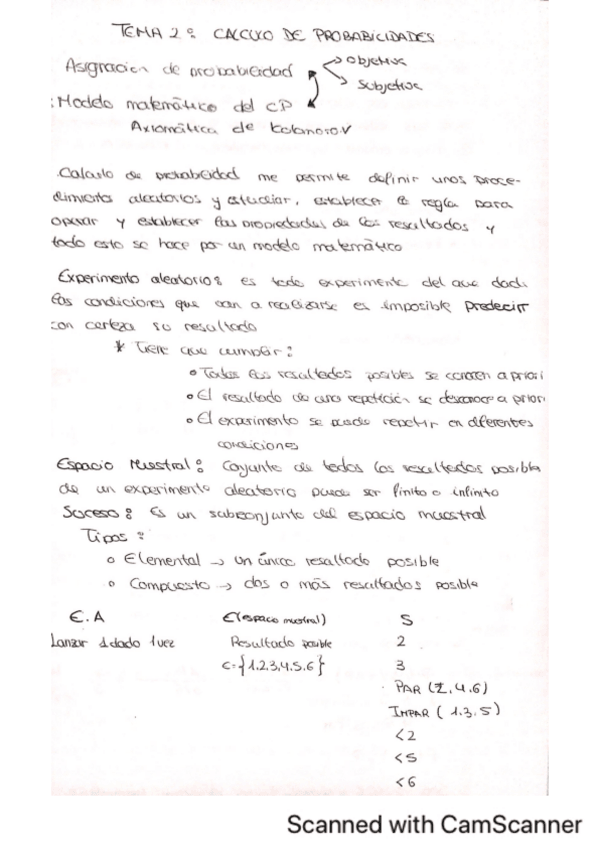 TEMA 2: CALCULO DE PROBABILIDADES
Asignacion de probabilidad → objetiva
→ subjetiva
: Modelo matemático del CP
Axiomática de Kolomorov
Calculo de probabilidad me permite definir unos proce-
dimientos aleatorios y estudiar, establecer la regla para
operar y establecer las propiedades de los resultados y
todo esto se hace por un modelo matemático
Experimento aleatorio: es todo experimento del que dada
las condiciones que van a realizarse es imposible predecir
con certeza su resultado
* Tiene que cumplir:
• Todos los resultados posibles se conocen a priori
• El resultado de una repetición se desconoce a priori
• El experimento se puede repetir en diferentes
condiciones
Espacio Muestral: Conjunto de todos los resultados posible
de un experimento aleatorio puede ser finito o infinito
Suceso: Es un subconjunto del espacio muestral
Tipos:
• Elemental → un único resultado posible
• Compuesto → dos o más resultados posible
E.A E(espacio muestral) S
Lanzar 1 dado 1 vez Resultado posible 2
E={1.2.3.4.5.6} 3
PAR (2.4.6)
IMPAR (1.3.5)
<2
<5
<6
Scanned with CamScanner